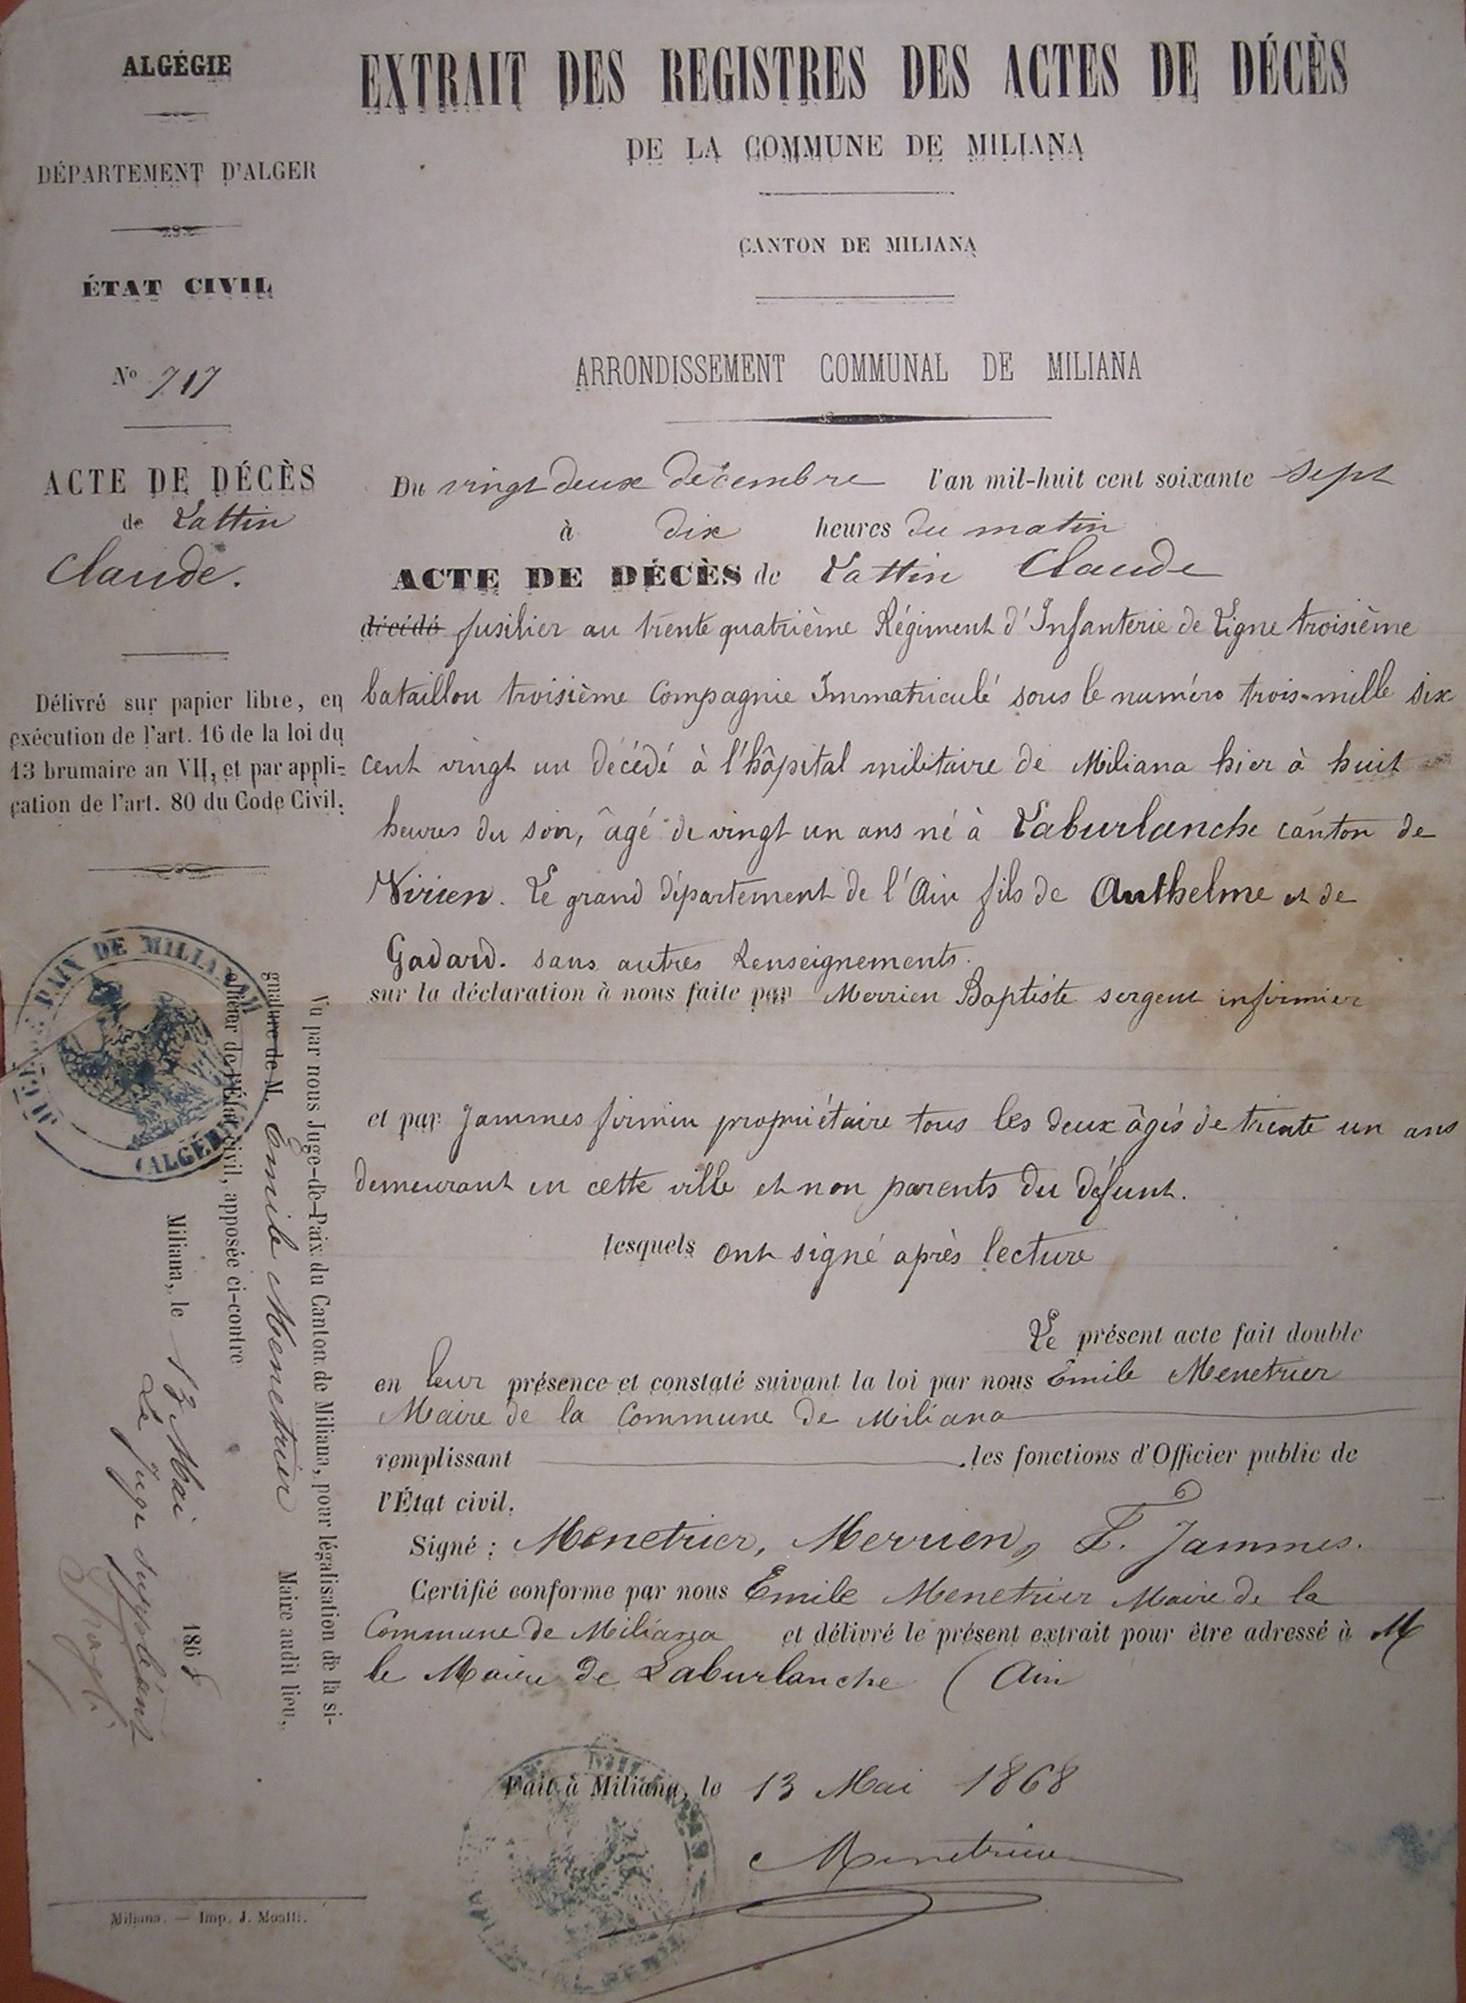 ALGÉGIE
DÉPARTEMENT D'ALGER
ÉTAT CIVIL
N° 717
ACTE DE DÉCÈS
de Lattin
Claude.
Délivré sur papier libre, en
exécution de l'art. 16 de la loi du
13 brumaire an VII, et par appli-
cation de l'art. 80 du Code Civil.
EXTRAIT DES REGISTRES DES ACTES DE DÉCÈS
DE LA COMMUNE DE MILIANA
CANTON DE MILIANA
ARRONDISSEMENT COMMUNAL DE MILIANA
Du vingt deux décembre l'an mil-huit cent soixante sept
à dix heures du matin
ACTE DE DÉCÈS de Lattin Claude
décédé fusilier au trente quatrième Régiment d'Infanterie de Ligne troisième
bataillon troisième Compagnie Immatriculé sous le numéro trois-mille six
cent vingt un décédé à l'hôpital militaire de Miliana hier à huit
heures du soir, âgé de vingt un ans né à Laburlanche canton de
Virien. Le grand département de l'Ain fils de Anthelme et de
Gadard. sans autres Renseignements.
sur la déclaration à nous faite par Merrien Baptiste sergent infirmier
et par Jammes firmin propriétaire tous les deux âgés de trente un ans
demeurant en cette ville et non parents du défunt.
lesquels ont signé après lecture
Le présent acte fait double
en leur présence et constaté suivant la loi par nous Emile Menetrier
Maire de la Commune de Miliana
remplissant les fonctions d'Officier public de
l'État civil.
Signé : Menetrier, Merrien, F. Jammes.
Certifié conforme par nous Emile Menetrier Maire de la
Commune de Miliana et délivré le présent extrait pour être adressé à M
le Maire de Laburlanche (Ain
Fait à Miliana, le 13 Mai 1868
Menetrier
Vu par nous Juge-de-Paix du Canton de Miliana, pour légalisation de la si-
gnature de M. Emile Menetrier Maire audit lieu,
officier de l'État civil, apposée ci-contre
Miliana, le 13 Mai 1868
Le Juge suppléant
PAIX DE MILIANAH
(ALGÉRIE)
Miliana. — Imp. J. Moatti.